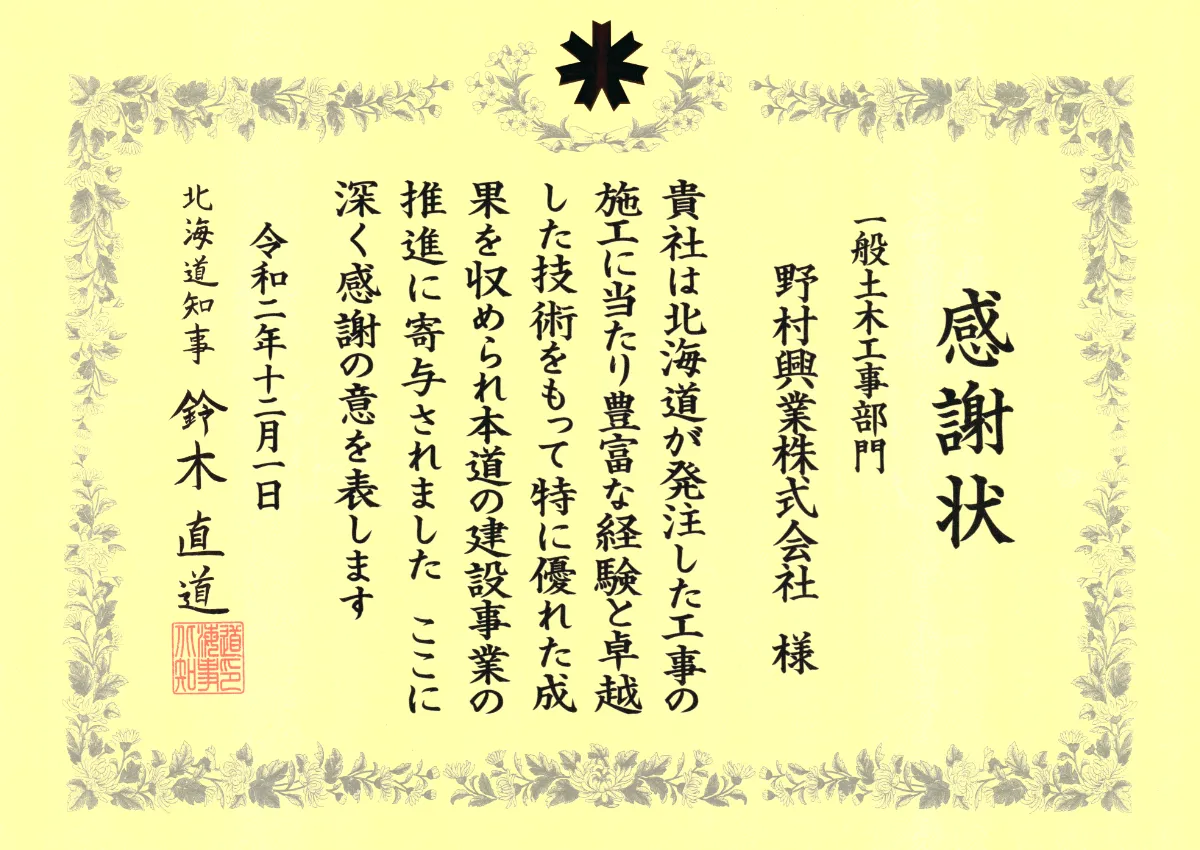 感謝状
一般土木工事部門
野村興業株式会社 様
貴社は北海道が発注した工事の
施工に当たり豊富な経験と卓越
した技術をもって特に優れた成
果を収められ本道の建設事業の
推進に寄与されました ここに
深く感謝の意を表します
令和二年十二月一日
北海道知事 鈴木直道
道印
海事
北知